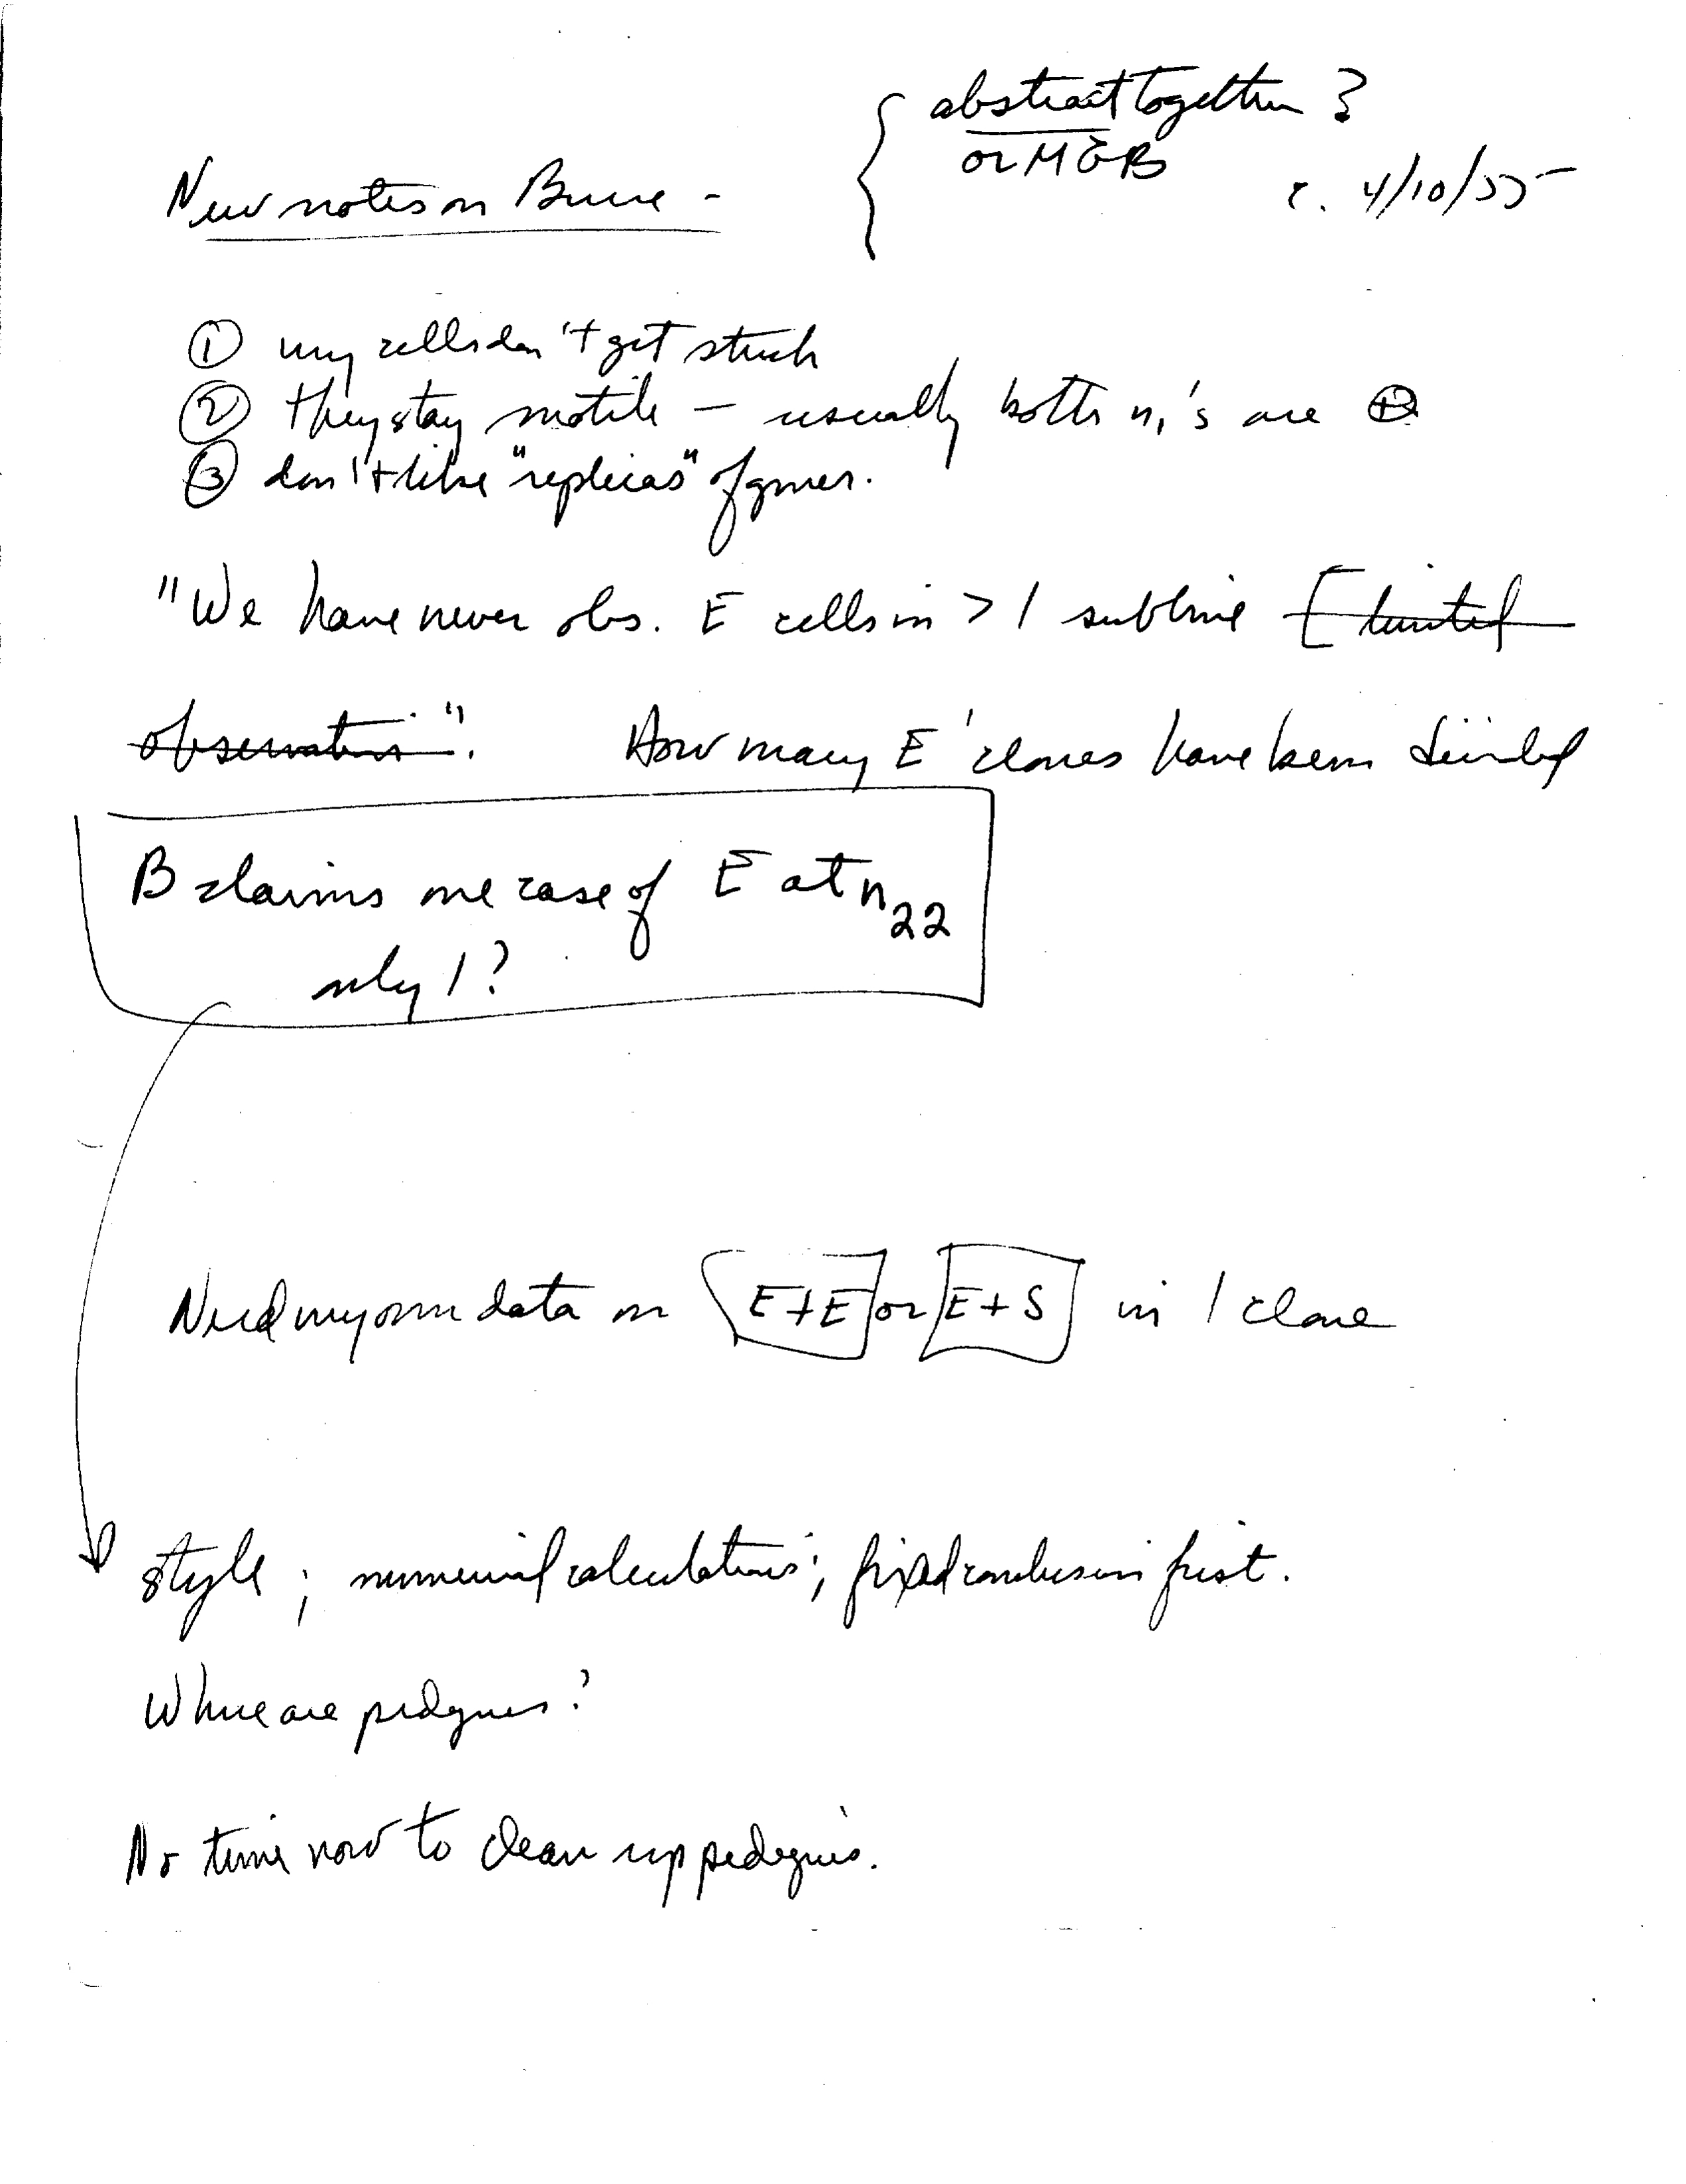 abstract together ?
or M & B
New notes on Bruce -
c. 4/10/55
① my cells don't get stuck
② they stay motile — usually both n₁'s are ⊕
③ don't like "replicas" of
"We have never obs. E cells in > 1 subline [limited
observations". How many E clones have been
B claims one case of E at n₂₂
only 1?
Need my own data on E+E or E+S in 1 clone
style; numerical calculations; fixed conclusion first.
Where are pedigrees?
No time now to clean up pedigrees.